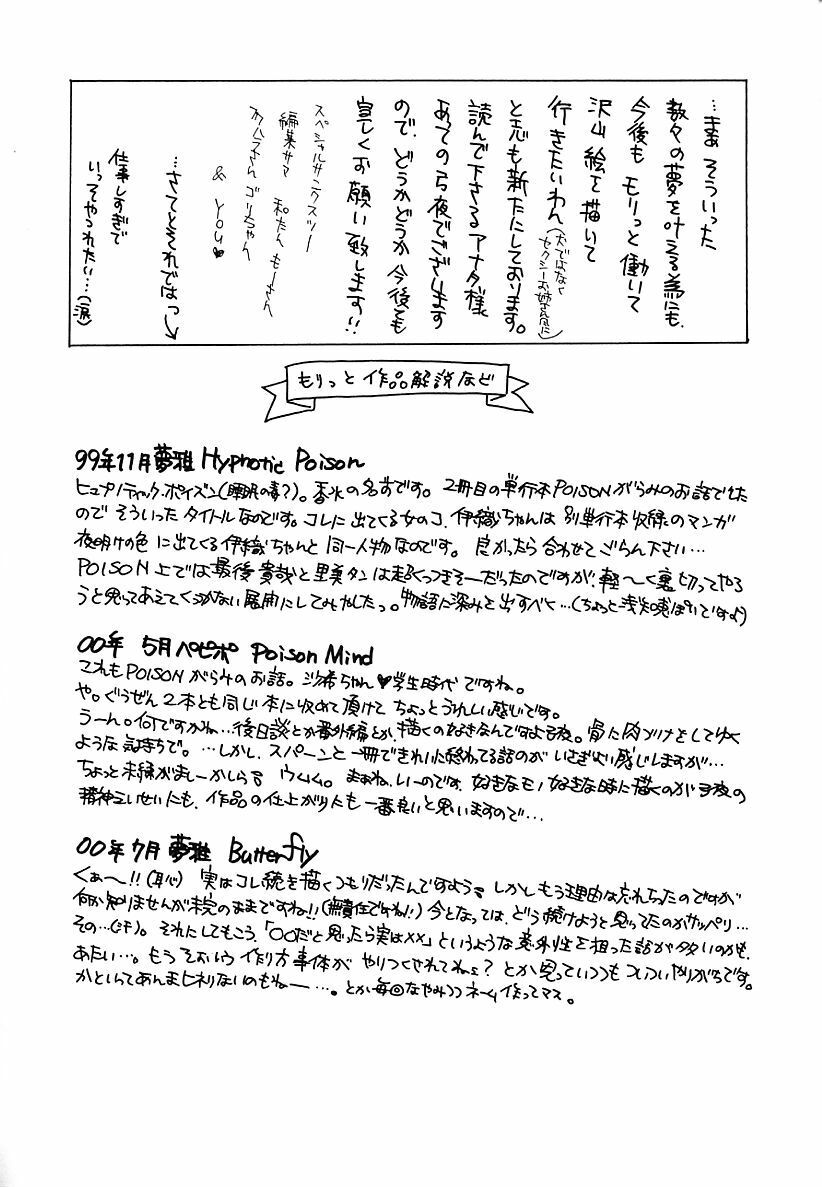 …まぁ そういった
数々の夢を叶える為にも、
今後も モリっと働いて
沢山 絵を描いて
行きたいわん(犬ではなく
セクシーお姉さん風に)
と志も新たにしております。
読んで下さるアナタ様
あっての弓夜でございます
ので、どうかどうか今後とも
宜しくお願い致します!!
スペシャルサンクスツー
編集サマ 和たん もーさん
オノムラさん ゴリちゃん
& YOU♥
…さてとそれではっ↓
仕事しすぎで
いってやつれたい…(涙)
もりっと作品解説など
99年11月夢雅 Hypnotic Poison
ヒュプノティック・ポイズン(睡眠の毒?)。香水の名前です。2冊目の単行本POISONがらみのお話でした
ので そういったタイトルなのです。コレに出てくる女のコ、伊織ちゃんは 別単行本収録のマンガ
夜明けの色 に出てくる伊織ちゃんと 同一人物なのです。良かったら合わせてごらん下さい…
POISON上では最後 貴哉と里美タンは超くっつきそーだったのですが、軽〜く裏切ってやろ
うと思ってあえてくっつかない展開にしてみやしたっ。物語に深みを出すべく…(ちょっと浅知恵ぽいですよ)
00年 5月ペピポ Poison Mind
これもPOISONがらみのお話。沙希ちゃん♥学生時代ですね。
や。ぐうぜん2本とも同じ本に収めて頂けて ちょっとうれしい感じです。
うーん。何ですかね…後日談とか番外編とか、描くの好きなんですよ弓夜。骨に肉づけをしてゆく
ような気持ちで。…しかし、スパーンと一冊できれいに終わってる話のが いさぎよい感じしますが…
ちょっと未練がましーかしら? ウムム。まぁね、いーのです、好きなモノ好きな時に描くのが弓夜の
精神えいせいにも、作品の仕上がりにも一番良いと思いますので…
00年7月 夢雅 Butterfly
くぁ〜!!(耳心) 実はコレ続を描くつもりだったんですよう? しかしもう理由は忘れちったのですが
何か知りませんが未完のままですね!!(無責任ですね!) 今となっては、どう続けようと思ってたのかサッパリ…
その…(汗)。それにしてもこう、「〇〇だと思ったら実は××」というような意外性を狙った話が多いのかも、
あたい…。もうそおいう作り方事体が やりつくされてねぇ? とか思っていつつもついついやりがちです。
かといってあんまヒネリないのもねー…。とか毎回なやみつつネーム作ってマス。